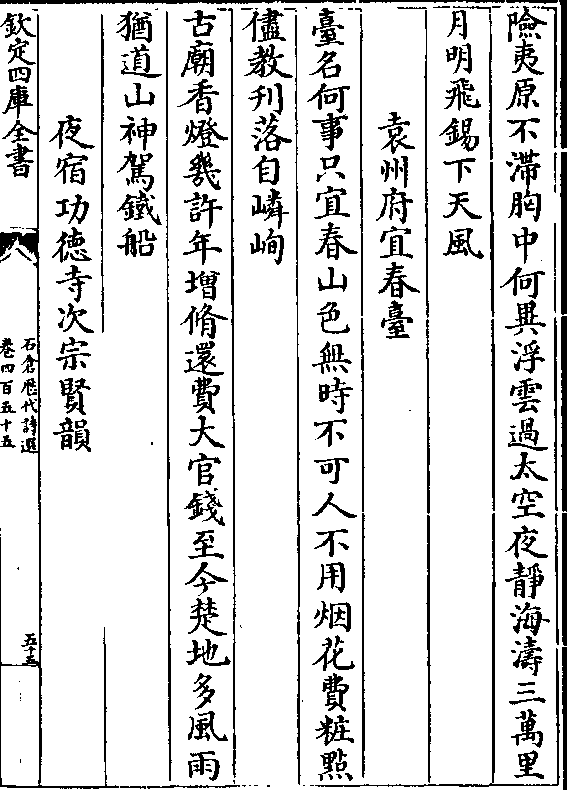 險夷原不滯胸中何異浮雲過太空夜靜海濤三萬里
月明飛錫下天風
袁州府宜春臺
臺名何事只宜春山色無時不可人不用烟花費粧㸃
儘教刋落自嶙峋
古廟香燈幾許年增脩還費大官錢至今楚地多風雨
猶道山神駕鐵船
夜宿功德寺次宗賢韻
欽定四庫全書
石倉歷代詩選
卷四百五十五
五十五